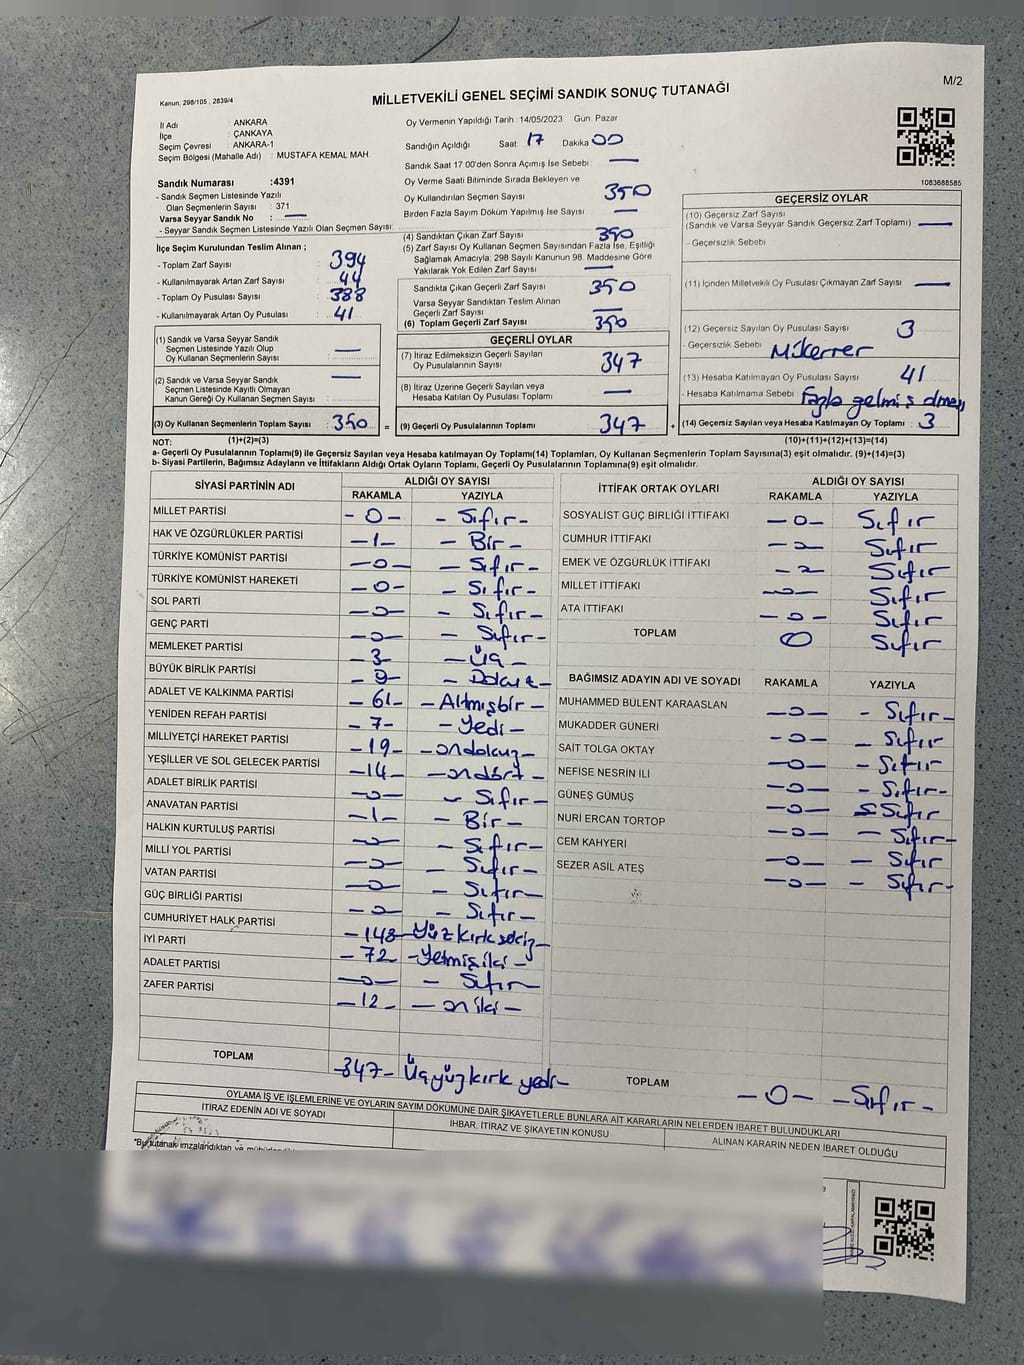 M/2
Kanun: 298/105 , 2839/4
MİLLETVEKİLİ GENEL SEÇİMİ SANDIK SONUÇ TUTANAĞI
İl Adı : ANKARA
İlçe : ÇANKAYA
Seçim Çevresi : ANKARA-1
Seçim Bölgesi (Mahalle Adı) : MUSTAFA KEMAL MAH.
Oy Vermenin Yapıldığı Tarih 14/05/2023 Gün: Pazar
Sandığın Açıldığı Saat: 17 Dakika 00
Sandık Saat 17:00'den Sonra Açımış İse Sebebi: —
Oy Verme Saati Bitiminde Sırada Bekleyen ve
Oy Kullandırılan Seçmen Sayısı 350
Birden Fazla Sayım Döküm Yapılmış İse Sayısı —
1083688585
Sandık Numarası :4391
- Sandık Seçmen Listesinde Yazılı
Olan Seçmenlerin Sayısı : 371
Varsa Seyyar Sandık No : —
- Seyyar Sandık Seçmen Listesinde Yazılı Olan Seçmen Sayısı:
İlçe Seçim Kurulundan Teslim Alınan ;
- Toplam Zarf Sayısı : 394
- Kullanılmayarak Artan Zarf Sayısı : 44
- Toplam Oy Pusulası Sayısı : 388
- Kullanılmayarak Artan Oy Pusulası : 41
(1) Sandık ve Varsa Seyyar Sandık
Seçmen Listesinde Yazılı Olup
Oy Kullanan Seçmenlerin Sayısı : —
(2) Sandık ve Varsa Seyyar Sandık
Seçmen Listesinde Kayıtlı Olmayan
Kanun Gereği Oy Kullanan Seçmen Sayısı: —
(3) Oy Kullanan Seçmenlerin Toplam Sayısı : 350 =
(4) Sandıktan Çıkan Zarf Sayısı 350
(5) Zarf Sayısı Oy Kullanan Seçmen Sayısından Fazla İse, Eşitliği
Sağlamak Amacıyla; 298 Sayılı Kanunun 98. Maddesine Göre
Yakılarak Yok Edilen Zarf Sayısı —
Sandıkta Çıkan Geçerli Zarf Sayısı 350
Varsa Seyyar Sandıktan Teslim Alınan
Geçerli Zarf Sayısı —
(6) Toplam Geçerli Zarf Sayısı 350
GEÇERLİ OYLAR
(7) İtiraz Edilmeksizin Geçerli Sayılan
Oy Pusulalarının Sayısı 347
(8) İtiraz Üzerine Geçerli Sayılan veya
Hesaba Katılan Oy Pusulası Toplamı —
(9) Geçerli Oy Pusulalarının Toplamı 347 +
GEÇERSİZ OYLAR
(10) Geçersiz Zarf Sayısı
(Sandık ve Varsa Seyyar Sandık Geçersiz Zarf Toplamı) —
- Geçersizlik Sebebi
(11) İçinden Milletvekili Oy Pusulası Çıkmayan Zarf Sayısı —
(12) Geçersiz Sayılan Oy Pusulası Sayısı 3
- Geçersizlik Sebebi : Mükerrer
(13) Hesaba Katılmayan Oy Pusulası Sayısı 41
- Hesaba Katılmama Sebebi Fazla gelmiş olması
(14) Geçersiz Sayılan veya Hesaba Katılmayan Oy Toplamı : 3
NOT: (1)+(2)=(3) (10)+(11)+(12)+(13)=(14)
a- Geçerli Oy Pusulalarının Toplamı(9) ile Geçersiz Sayılan veya Hesaba Katılmayan Oy Toplamı(14) Toplamları, Oy Kullanan Seçmenlerin Toplam Sayısına(3) eşit olmalıdır. (9)+(14)=(3)
b- Siyasi Partilerin, Bağımsız Adayların ve İttifakların Aldığı Ortak Oyların Toplamı, Geçerli Oy Pusulalarının Toplamına(9) eşit olmalıdır.
SİYASİ PARTİNİN ADI ALDIĞI OY SAYISI
RAKAMLA YAZIYLA
MİLLET PARTİSİ -0- - Sıfır-
HAK VE ÖZGÜRLÜKLER PARTİSİ -1- - Bir -
TÜRKİYE KOMÜNİST PARTİSİ -0- - Sıfır-
TÜRKİYE KOMÜNİST HAREKETİ -0- - Sıfır-
SOL PARTİ -0- - Sıfır-
GENÇ PARTİ -0- - Sıfır-
MEMLEKET PARTİSİ -3- - Üç -
BÜYÜK BİRLİK PARTİSİ -9- - Dokuz-
ADALET VE KALKINMA PARTİSİ -61- -Altmışbir-
YENİDEN REFAH PARTİSİ -7- -Yedi-
MİLLİYETÇİ HAREKET PARTİSİ -19- -ondokuz-
YEŞİLLER VE SOL GELECEK PARTİSİ -14- -ondört-
ADALET BİRLİK PARTİSİ -0- - Sıfır-
ANAVATAN PARTİSİ -1- - Bir -
HALKIN KURTULUŞ PARTİSİ -0- - Sıfır-
MİLLİ YOL PARTİSİ -0- - Sıfır-
VATAN PARTİSİ -0- - Sıfır-
GÜÇ BİRLİĞİ PARTİSİ -0- - Sıfır-
CUMHURİYET HALK PARTİSİ -148- Yüz kırk sekiz-
İYİ PARTİ -72- -Yetmişiki-
ADALET PARTİSİ -0- - Sıfır-
ZAFER PARTİSİ -12- - on iki -
TOPLAM -347- Üçyüz kırk yedi-
İTTİFAK ORTAK OYLARI ALDIĞI OY SAYISI
RAKAMLA YAZIYLA
SOSYALİST GÜÇ BİRLİĞİ İTTİFAKI -0- Sıfır
CUMHUR İTTİFAKI -0- Sıfır
EMEK VE ÖZGÜRLÜK İTTİFAKI -0- Sıfır
MİLLET İTTİFAKI -0- Sıfır
ATA İTTİFAKI -0- Sıfır
TOPLAM 0 Sıfır
BAĞIMSIZ ADAYIN ADI VE SOYADI RAKAMLA YAZIYLA
MUHAMMED BÜLENT KARAASLAN -0- - Sıfır-
MUKADDER GÜNERİ -0- - Sıfır
SAİT TOLGA OKTAY -0- - Sıfır
NEFİSE NESRİN İLİ -0- - Sıfır-
GÜNEŞ GÜMÜŞ -0- Sıfır
NURİ ERCAN TORTOP -0- - Sıfır-
CEM KAHYERİ -0- - Sıfır
SEZER ASİL ATEŞ -0- - Sıfır-
TOPLAM -0- -Sıfır-
OYLAMA İŞ VE İŞLEMLERİNE VE OYLARIN SAYIM DÖKÜMÜNE DAİR ŞİKAYETLERLE BUNLARA AİT KARARLARIN NELERDEN İBARET BULUNDUKLARI
İTİRAZ EDENİN ADI VE SOYADI
İHBAR, İTİRAZ VE ŞİKAYETİN KONUSU
ALINAN KARARIN NEDEN İBARET OLDUĞU
*Bu tutanak imzalandıktan ve